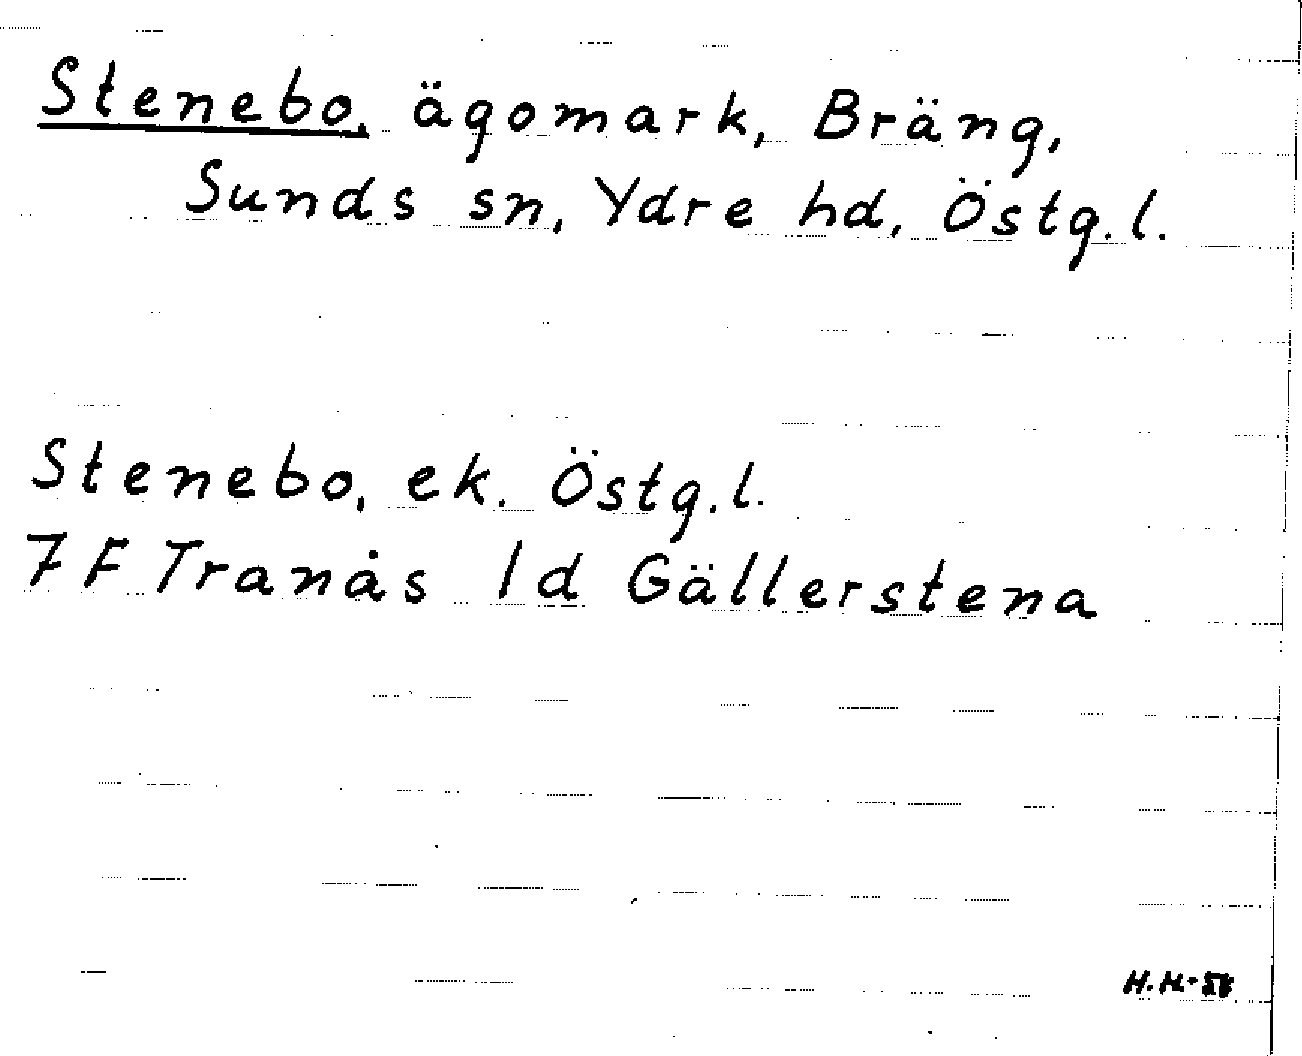 Stenebo, ägomark, Bräng,
Sunds sn, Ydre hd, Östg.l.
Stenebo, ek. Östg.l.
7 F Tranås 1d Gällerstena